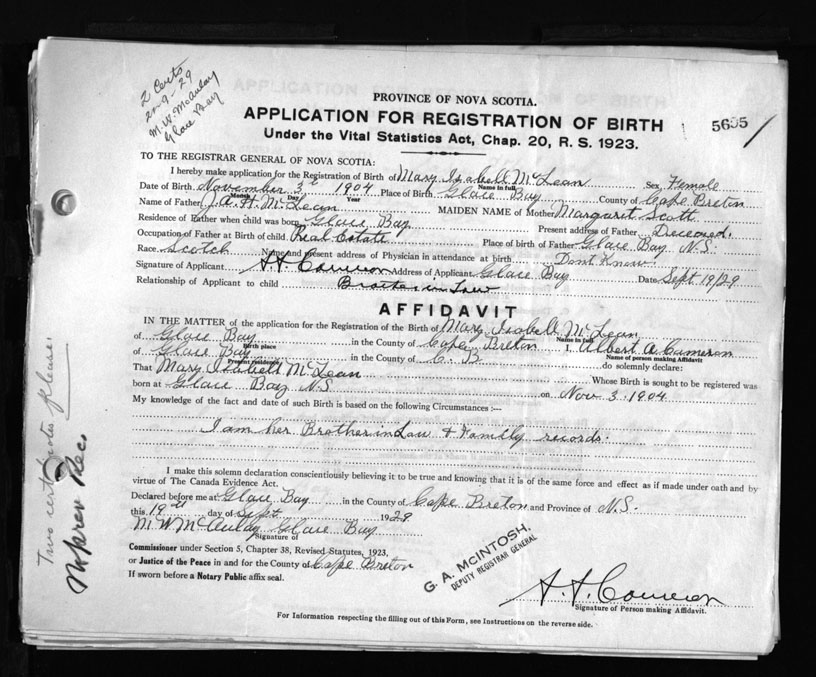 2 Certs
20-9-29
M.W. McAulay
Glace Bay
PROVINCE OF NOVA SCOTIA.
APPLICATION FOR REGISTRATION OF BIRTH
5695
Under the Vital Statistics Act, Chap. 20, R. S. 1923.
TO THE REGISTRAR GENERAL OF NOVA SCOTIA:
I hereby make application for the Registration of Birth of Mary Isabell McLean Sex Female
Name in full
Date of Birth November 3rd 1904 Place of Birth Glace Bay County of Cape Breton
Month Day Year
Name of Father J.A.H. McLean MAIDEN NAME of Mother Margaret Scott
Residence of Father when child was born Glace Bay Present address of Father Deceased.
Occupation of Father at Birth of child Real Estate Place of birth of Father Glace Bay N.S.
Race Scotch Name and present address of Physician in attendance at birth Dont Know
Signature of Applicant A.A. Cameron Address of Applicant Glace Bay Date Sept 19/29
Relationship of Applicant to child Brother in Law
AFFIDAVIT
IN THE MATTER of the application for the Registration of the Birth of Mary Isabell McLean
Name in full
of Glace Bay in the County of Cape Breton I, Albert A. Cameron
Birth place Name of person making Affidavit
of Glace Bay in the County of C. B do solemnly declare:
Present residence
That Mary Isabell McLean Whose Birth is sought to be registered was
born at Glace Bay N.S on Nov 3. 1904
My knowledge of the fact and date of such Birth is based on the following Circumstances :—
I am her Brother in Law & Family records.
I make this solemn declaration conscientiously believing it to be true and knowing that it is of the same force and effect as if made under oath and by
virtue of The Canada Evidence Act.
Declared before me at Glace Bay in the County of Cape Breton and Province of N.S.
this 19th day of Sept 1929
M W McAulay Glace Bay
Signature of
Commissioner under Section 5, Chapter 38, Revised Statutes, 1923,
or Justice of the Peace in and for the County of Cape Breton
If sworn before a Notary Public affix seal.
G. A. McINTOSH,
DEPUTY REGISTRAR GENERAL
A. A. Cameron
Signature of Person making Affidavit.
For Information respecting the filling out of this Form, see Instructions on the reverse side.
Two certificates please.
No prev Rec.